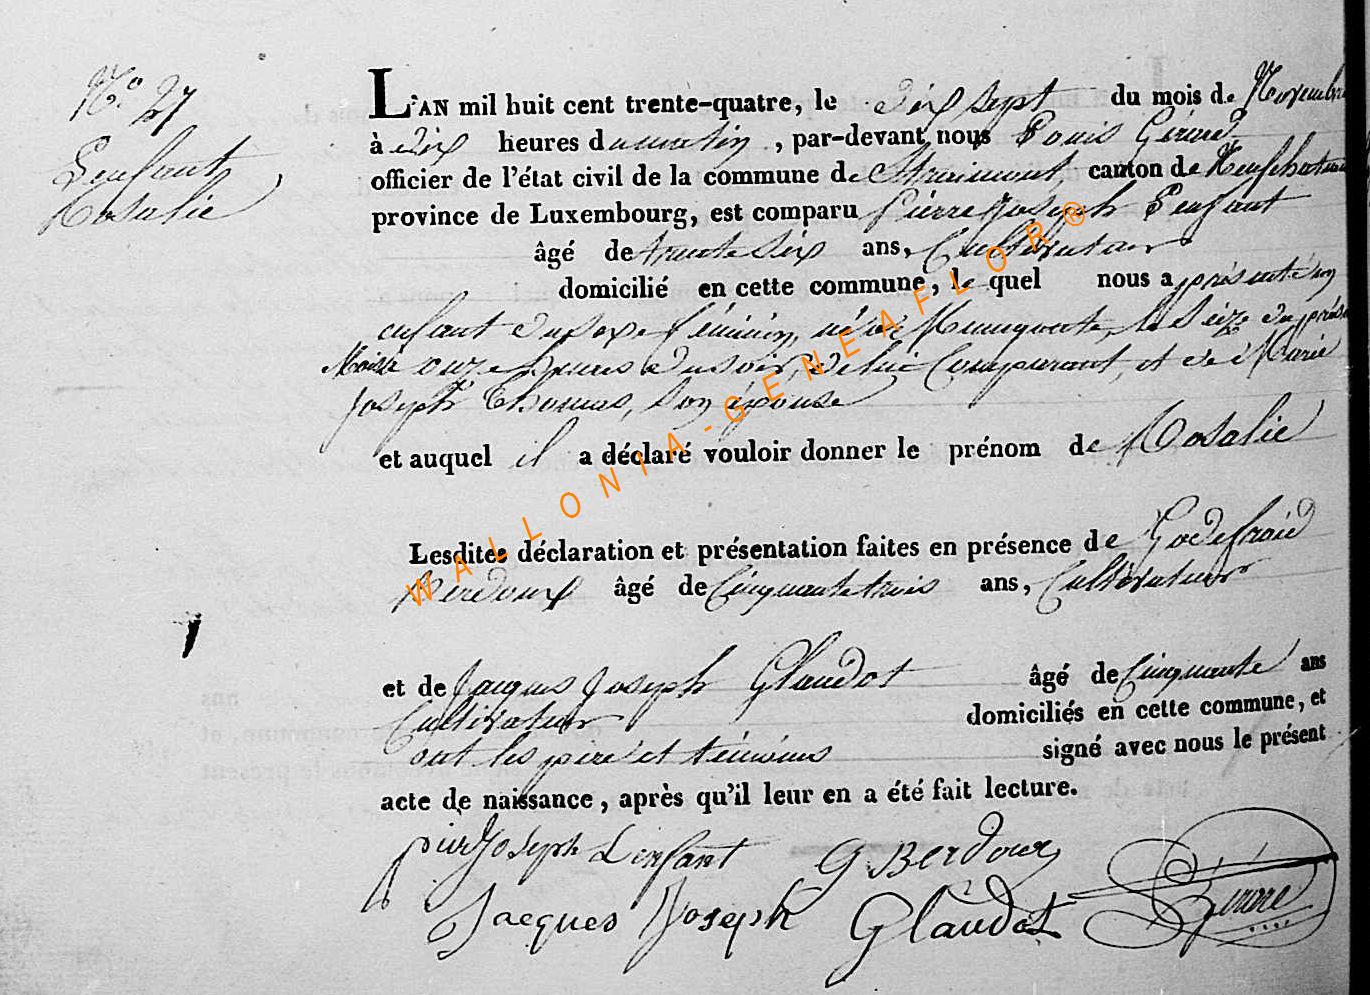 N.° 27
Lenfant
Rosalie
L'AN mil huit cent trente-quatre, le dix sept du mois de Novembre
à dix heures du matin, par-devant nous Louis Gérard
officier de l'état civil de la commune de Straimont, canton de Neufchateau
province de Luxembourg, est comparu Pierre Joseph Lenfant
âgé de trente six ans, Cultivateur
domicilié en cette commune, lequel nous a présenté un
enfant du sexe féminin, né à Menugoutte, le Seize du présent
Mois à onze heures du soir, de lui Comparant, et de Marie
Joseph Thomas, son épouse
et auquel il a déclaré vouloir donner le prénom de Rosalie
Lesdites déclaration et présentation faites en présence de Godefroid
Berdoux âgé de Cinquante trois ans, Cultivateur
et de Jacques Joseph Glaudot âgé de Cinquante ans
Cultivateur domiciliés en cette commune, et
ont les père et témoins signé avec nous le présent
acte de naissance, après qu'il leur en a été fait lecture.
pier Joseph Lenfant G Berdoux
Jacques Joseph Glaudot
WALLONIA-GENEAFLOR®